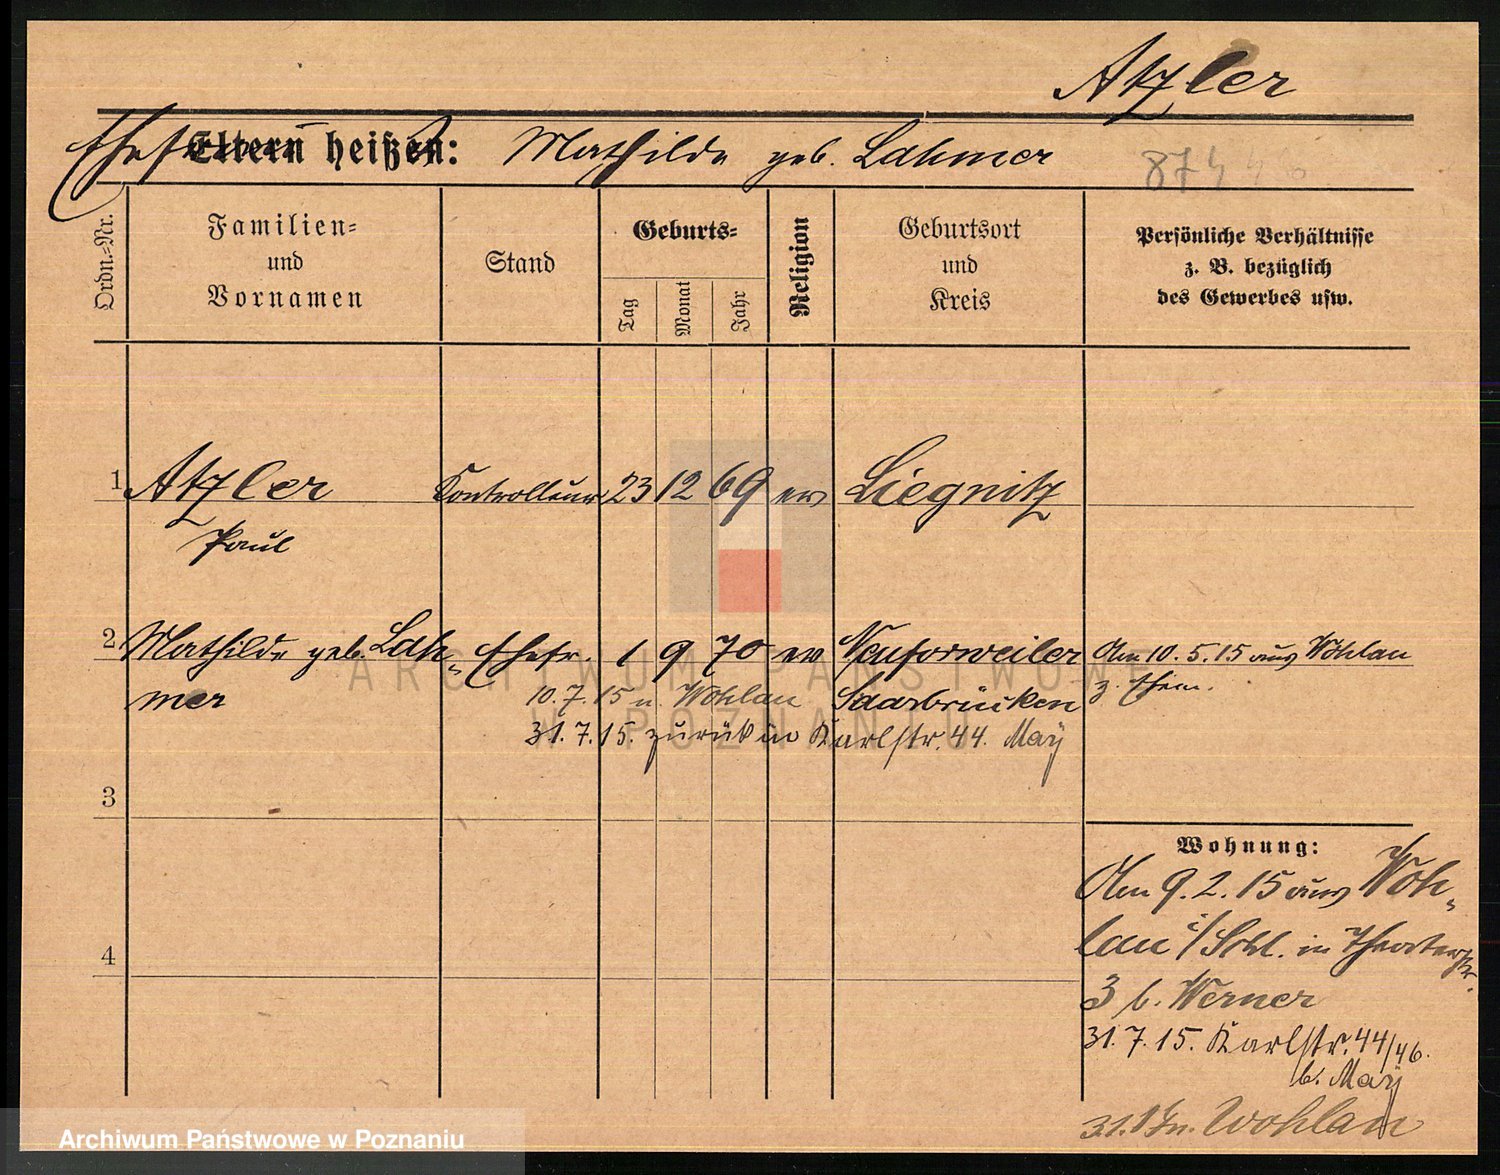 Atzler
Ehefr Eltern heißen: Mathilde geb. Lahmer
874
Ordn.=Nr.
Familien=
und
Vornamen
Stand
Geburts=
Tag
Monat
Jahr
Religion
Geburtsort
und
Kreis
Persönliche Verhältnisse
z. B. bezüglich
des Gewerbes usw.
1 Atzler Kontrolleur 23 12 69 ev Liegnitz
Paul
2 Mathilde geb. Lah- Ehefr. 1 9 70 ev Neuforweiler Am 10.5.15 aus Wohlau
mer Saarbrücken z. Ehem.
10.7.15 n. Wohlau
31.7.15. zurück in Karlstr. 44. May
3
4
Wohnung:
Am 9.2.15 aus Woh-
lau i/Schl. in Theaterstr.
3 b. Werner
31.7.15. Karlstr. 44/46.
b. May
n. Wohlau
ARCHIWUM PAŃSTWOWE
W POZNANIU
Archiwum Państwowe w Poznaniu